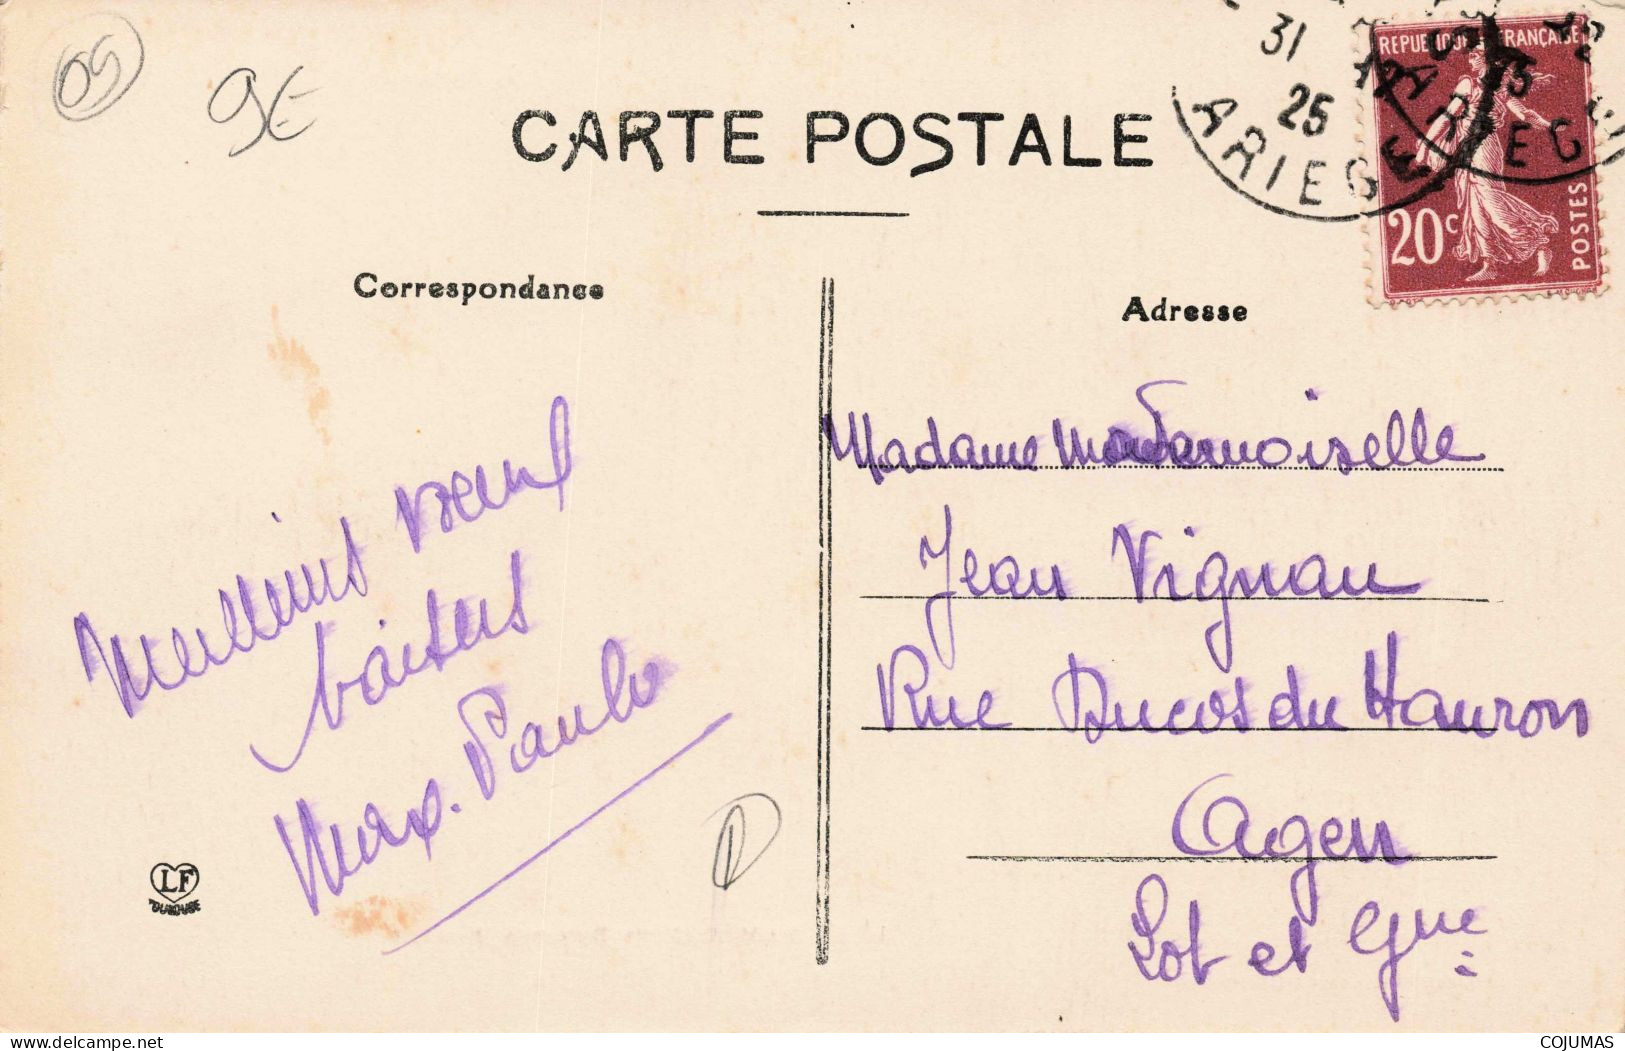 09
9€
CARTE POSTALE
31
25
ARIEGE
ARIEG
REPUBLIQUE FRANÇAISE
20c
POSTES
Correspondance
Adresse
Meilleurs vœux
baisers
Max. Paulo
Madame Mademoiselle
Jean Vignau
Rue Ducos du Hauron
Agen
Lot et Gne
LF
TOULOUSE
COJUMAS